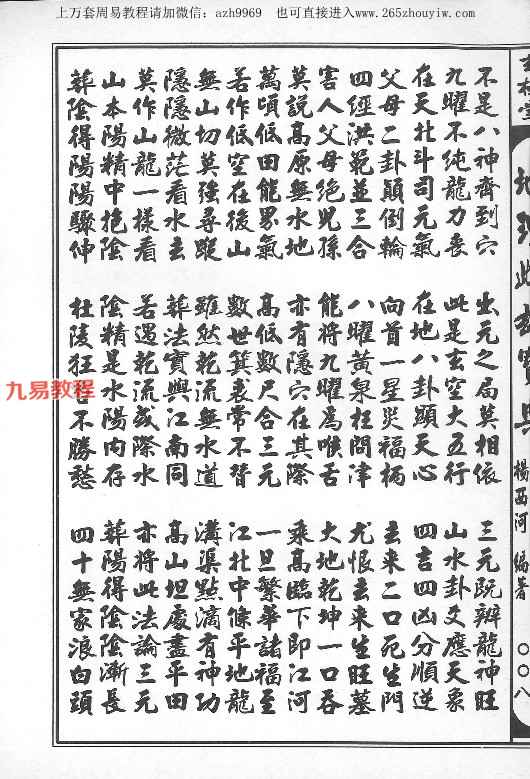 上万套周易教程请加微信：azh9969 也可直接进入www.265zhouyiw.com
楊西河 編著
〇〇八
不是八神齊到穴 出元之局莫相依 三元既辨龍神旺
九曜不純龍力喪 此是玄空大五行 山水卦爻應天象
在天北斗司元氣 在地八卦顯天心 四吉四凶分順逆
父母二卦顛倒輪 向首一星災福柄 去來二口死生門
四經洪範並三合 八曜黃泉枉問津 尤恨去來生旺墓
害人父母絕兒孫 能將九曜為喉舌 大地乾坤一口吞
莫說高原無水地 亦有隱穴在其際 乘高臨下即江河
萬頃低田能界氣 高低數尺合三元 一旦繁華諸福至
若作低空在後山 數世箕裘常不替 江北中條平地龍
無山切莫強尋蹤 雖然乾流無水道 溝渠點滴有神功
隱隱微茫看水去 葬法實與江南同 高山坦處盡平田
莫作山龍一樣看 若遇乾流或際水 亦將此法論三元
山本陽精中抱陰 陰精是水陽內存 葬陽得陰陰漸長
葬陰得陽陽驟伸 杜陵狂客不勝愁 四十無家浪白頭
九易教程